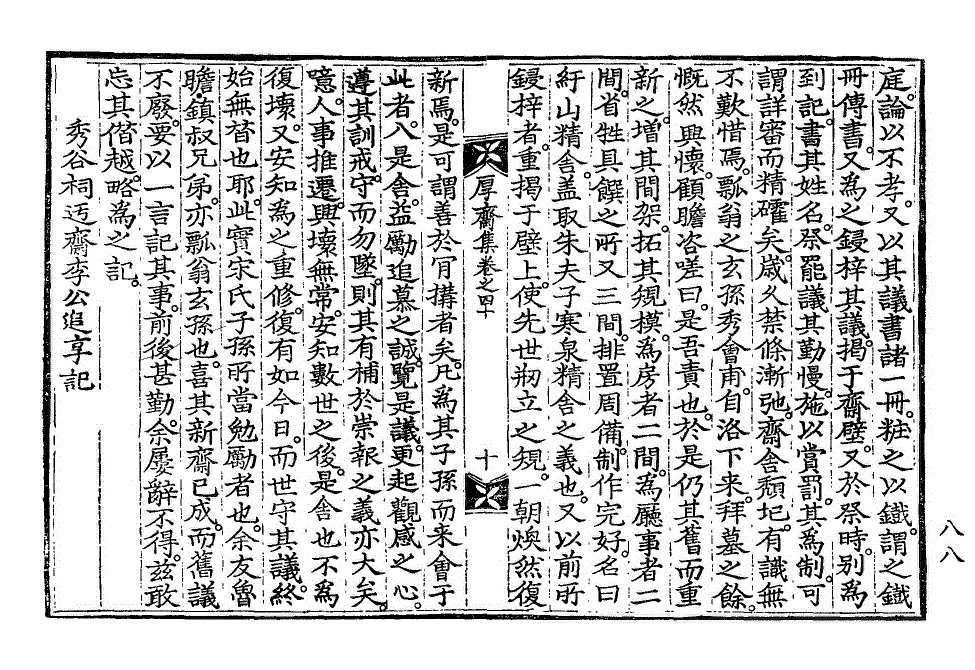 庭。論以不孝。又以其議書諸一冊。粧之以鐵。謂之鐵
冊傳書。又爲之鋟梓其議。揭于齋壁。又於祭時。別爲
到記。書其姓名。祭罷議其勤慢。施以賞罰。其爲制。可
謂詳審而精確矣。歲久禁條漸弛。齋舍頹圮。有識無
不歎惜焉。瓢翁之玄孫秀會甫。自洛下来。拜墓之餘。
慨然興懷。顧瞻咨嗟曰。是吾責也。於是仍其舊而重
新之。增其間架。拓其規模。爲房者二間。爲廳事者二
間。省牲具饌之所又三間。排置周備。制作完好。名曰
紆山精舍。盖取朱夫子寒泉精舍之義也。又以前所
鋟梓者。重揭于壁上。使先世刱立之規。一朝煥然復
厚齋集卷之四十
十
新焉。是可謂善於肯搆者矣。凡爲其子孫而来會于
此者。入是舍。益勵追慕之誠。覽是議。更起觀感之心。
遵其訓戒。守而勿墜。則其有補於崇報之義亦大矣。
噫。人事推遷。興壞無常。安知數世之後。是舍也不爲
復壞。又安知爲之重修復。有如今日。而世守其議。終
始無替也耶。此實宋氏子孫所當勉勵者也。余友魯
瞻鎮叔兄弟。亦瓢翁玄孫也。喜其新齋已成。而舊議
不廢。要以一言記其事。前後甚勤。余屢辭不得。玆敢
忘其僭越。略爲之記。
秀谷祠迃齋李公追享記
八八